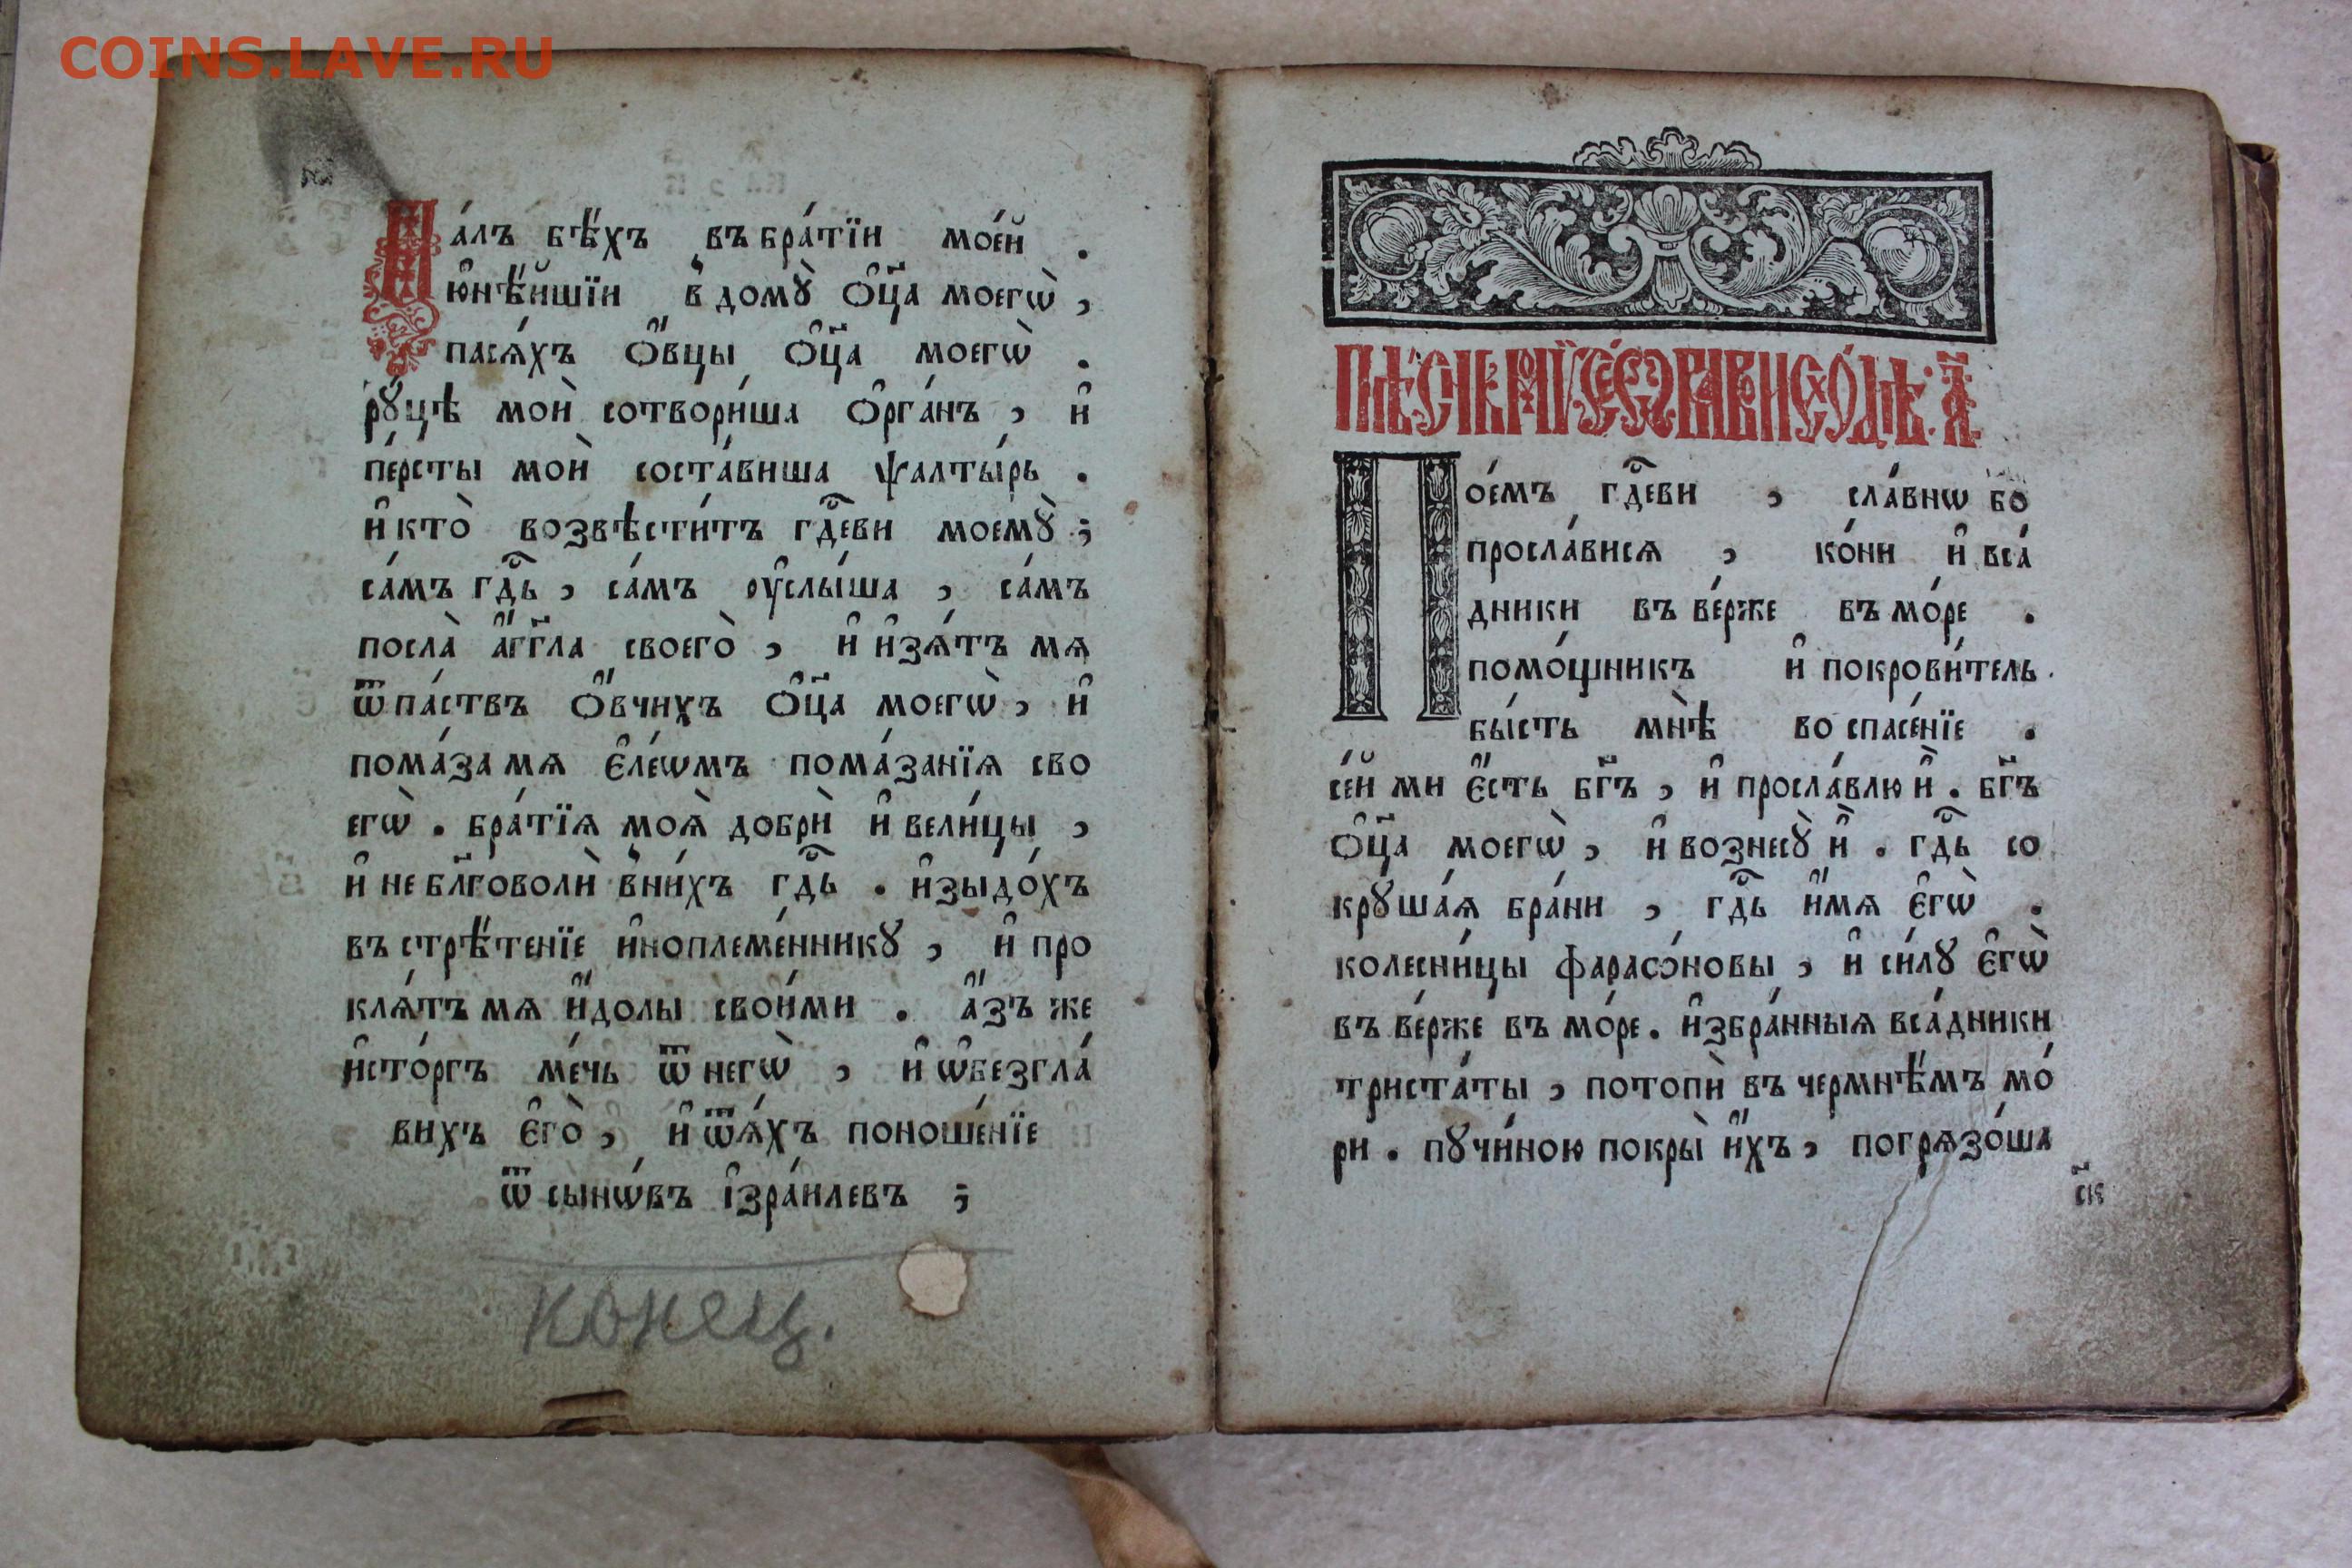 COINS.LAVE.RU
Ма́лъ бѣ́хъ въ бра́тїи мое́й .
ю҆нѣ́йшїи в домꙋ̀ ѻ҆ц҃а моегѡ̀ ,
пася́хъ ѻ҆́вцы ѻ҆ц҃а моегѡ̀ .
рꙋ́цѣ моѝ сотвори́ша ѻ҆рга́нъ , и҆
пе́рсты моѝ соста́виша ѱалты́рь .
и҆ кто̀ возвѣсти́тъ гдⷭ҇еви моемꙋ̀ ;
са́мъ гдⷭ҇ь , са́мъ оу҆слы́ша , са́мъ
посла̀ а҆́гг҃ла своего̀ , и҆ и҆зѧ́тъ мѧ
ѿ па́ствъ ѻ҆́вчихъ ѻ҆ц҃а моегѡ̀ , и҆
пома́за мѧ є҆ле́ѡмъ пома́занїѧ сво
егѡ̀ . бра́тїѧ моѧ̀ добрѝ и҆ вели́цы ,
и҆ не бл҃говолѝ в ни́хъ гдⷭ҇ь . и҆зыдо́хъ
въ стрѣ́тенїе и҆ноплеме́нникꙋ , и҆ про
клѧ́тъ мѧ и҆́долы свои́ми . а҆́зъ же
и҆сто́ргъ ме́чь ѿ негѡ̀ , и҆ ѡ҆безгла́
вихъ є҆го̀ , и҆ ѿѧ́хъ поноше́нїе
ѿ сынѡ́въ і҆зра́илевъ ;
конец.
Пѣ́снь мѡѷсе́ѡва въ и҆схо́дѣ . а҃
Пое́мъ гдⷭ҇еви , сла́внѡ бо
просла́висѧ , ко́ни и҆ вса́
дники въ ве́рже въ мо́ре .
помо́щникъ и҆ покрови́тель .
бы́сть мнѣ̀ во спасе́нїе .
се́й ми є҆́сть бг҃ъ , и҆ просла́влю и҆̀ . бг҃ъ
ѻ҆ц҃а моегѡ̀ , и҆ вознесꙋ̀ и҆̀ . гдⷭ҇ь со
крꙋша́ѧ бра́ни , гдⷭ҇ь и҆́мѧ є҆гѡ̀ .
колесни́цы фараѻ́новы , и҆ си́лꙋ є҆гѡ̀
въ ве́рже въ мо́ре . и҆збра́нныѧ вса́дники
триста́ты , потопѝ въ чермнѣ́мъ мо́
ри . пꙋчи́ною покры̀ и҆́хъ , погрѧзо́ша
ск҃